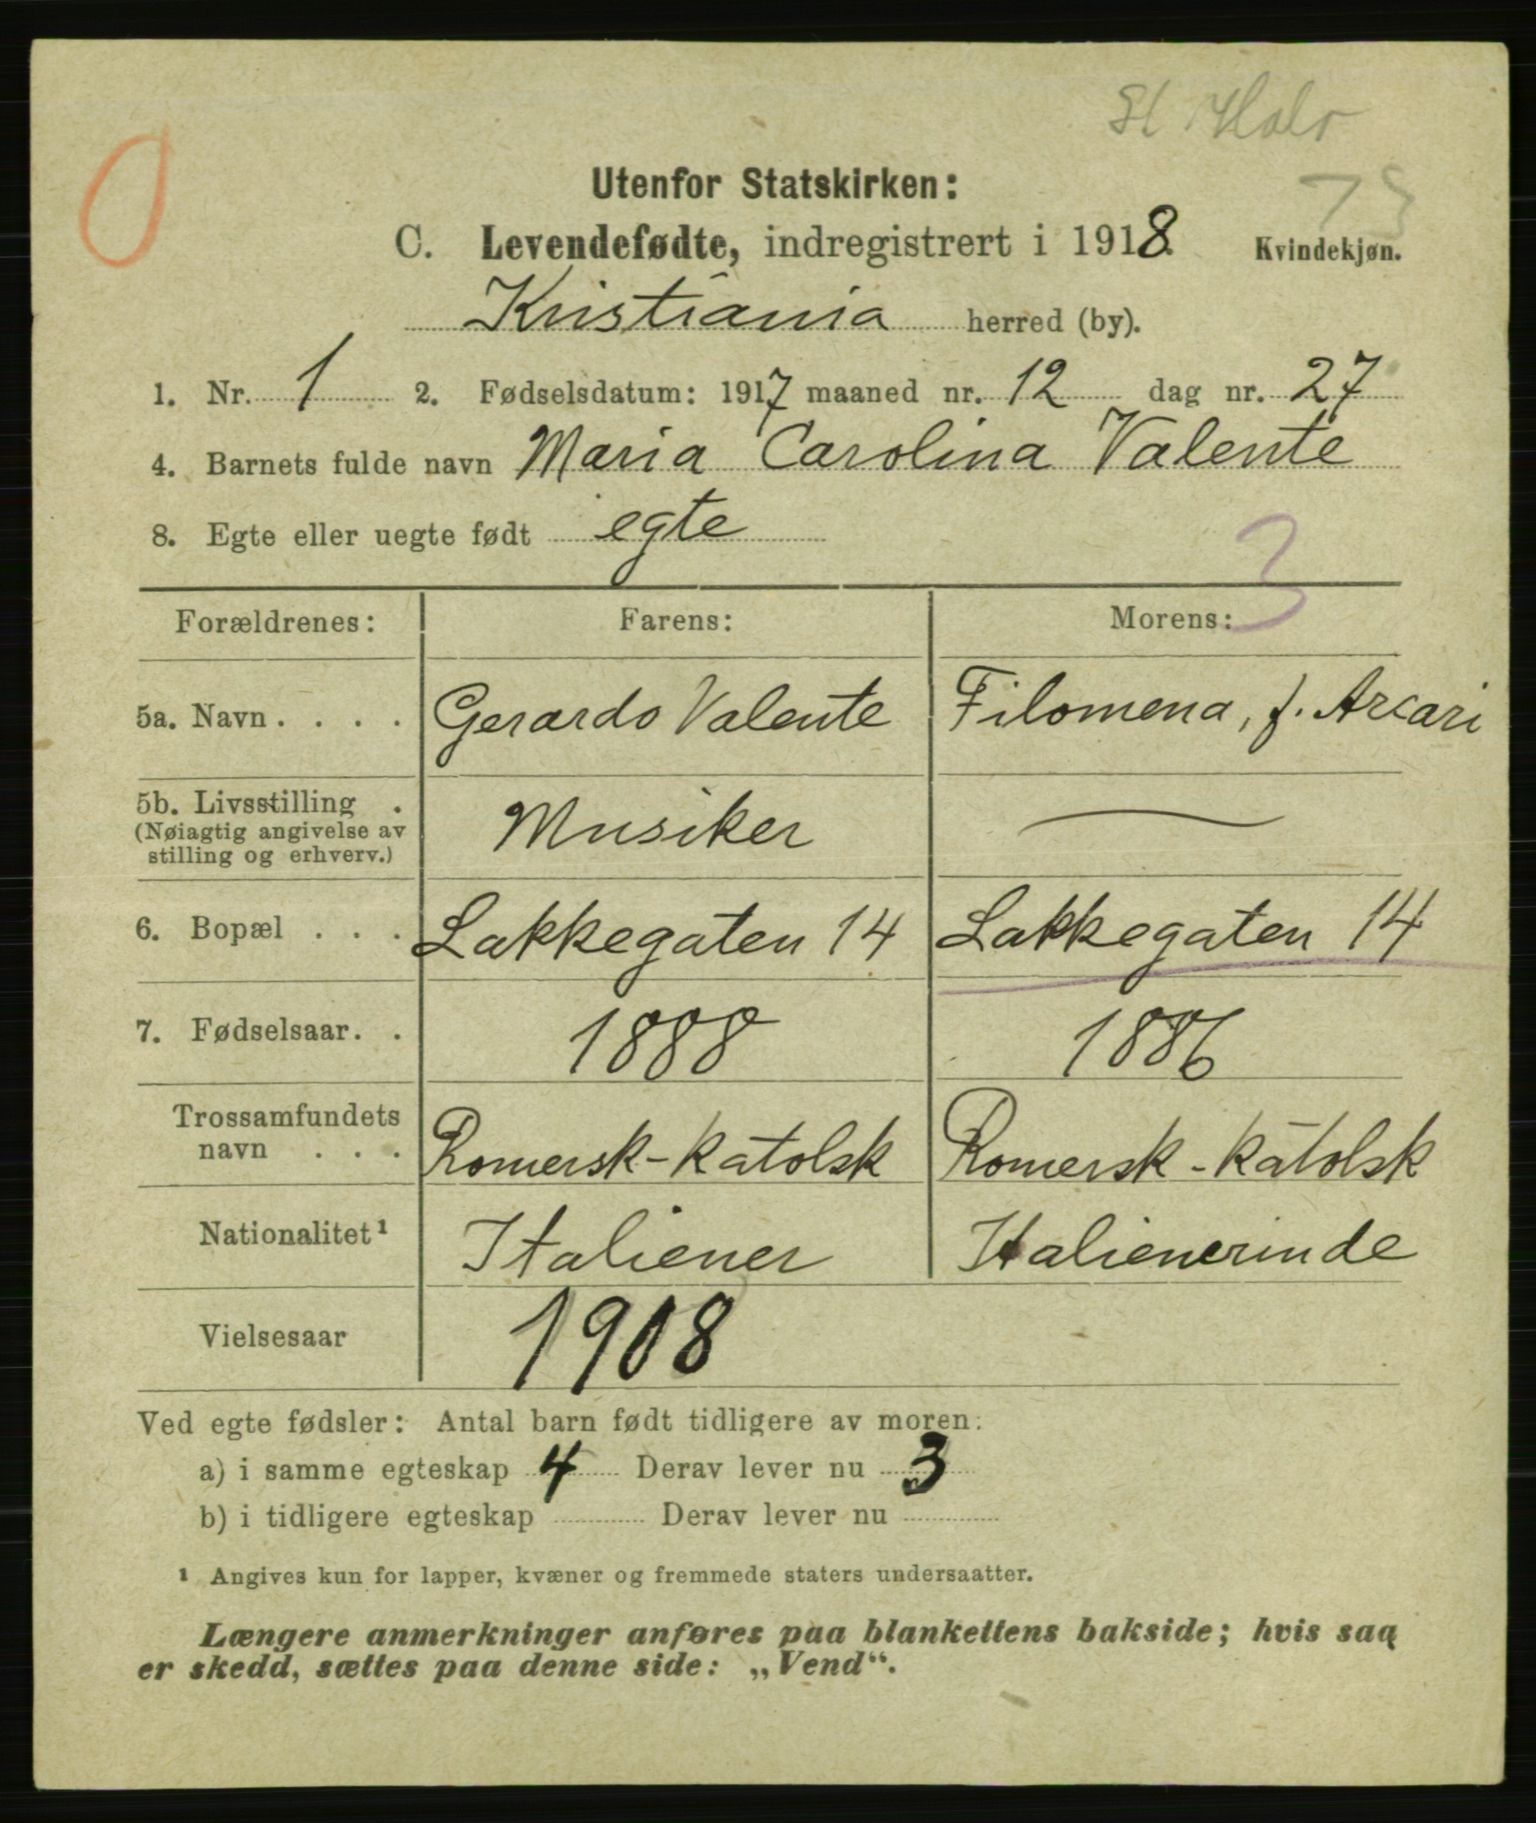 St Halv
Utenfor Statskirken:
C. Levendefødte, indregistrert i 1918. Kvindekjøn.
Kristiania herred (by).
1. Nr. 1 2. Fødselsdatum: 1917 maaned nr. 12 dag nr. 27
4. Barnets fulde navn Maria Carolina Valente
8. Egte eller uegte født egte
3
Forældrenes: Farens: Morens:
5a. Navn . . . . Gerardo Valente Filomena, f. Arcari
5b. Livsstilling . Musiker —
(Nøiagtig angivelse av
stilling og erhverv.)
6. Bopæl . . . Lakkegaten 14 Lakkegaten 14
7. Fødselsaar. . 1888 1886
Trossamfundets
navn . . . Romersk-katolsk Romersk-katolsk
Nationalitet¹ Italiener Italienerinde
Vielsesaar 1908
Ved egte fødsler: Antal barn født tidligere av moren:
a) i samme egteskap 4 Derav lever nu 3
b) i tidligere egteskap Derav lever nu
¹ Angives kun for lapper, kvæner og fremmede staters undersaatter.
Længere anmerkninger anføres paa blankettens bakside; hvis saa
er skedd, sættes paa denne side: „Vend“.